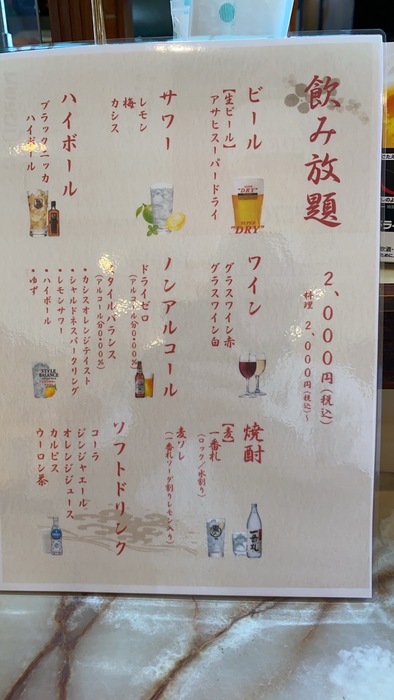 飲み放題
2、000円(税込)
料理 2、000円(税込)~
ビール
【生ビール】
アサヒスーパードライ
サワー
レモン
梅
カシス
ハイボール
ブラックニッカ
ハイボール
ワイン
グラスワイン赤
グラスワイン白
ノンアルコール
ドライゼロ
(アルコール分0・00%)
スタイルバランス
(アルコール分0・00%)
・カシスオレンジテイスト
・シャルドネスパークリング
・レモンサワー
・ハイボール
・ゆず
焼酎
【麦】
一番札
(ロック/水割り)
麦ソレ
(一番札ソーダ割りレモン入り)
ソフトドリンク
コーラ
ジンジャエール
オレンジジュース
カルピス
ウーロン茶
"DRY"
SUPER
"DRY"
STYLE
BALANCE
一番札